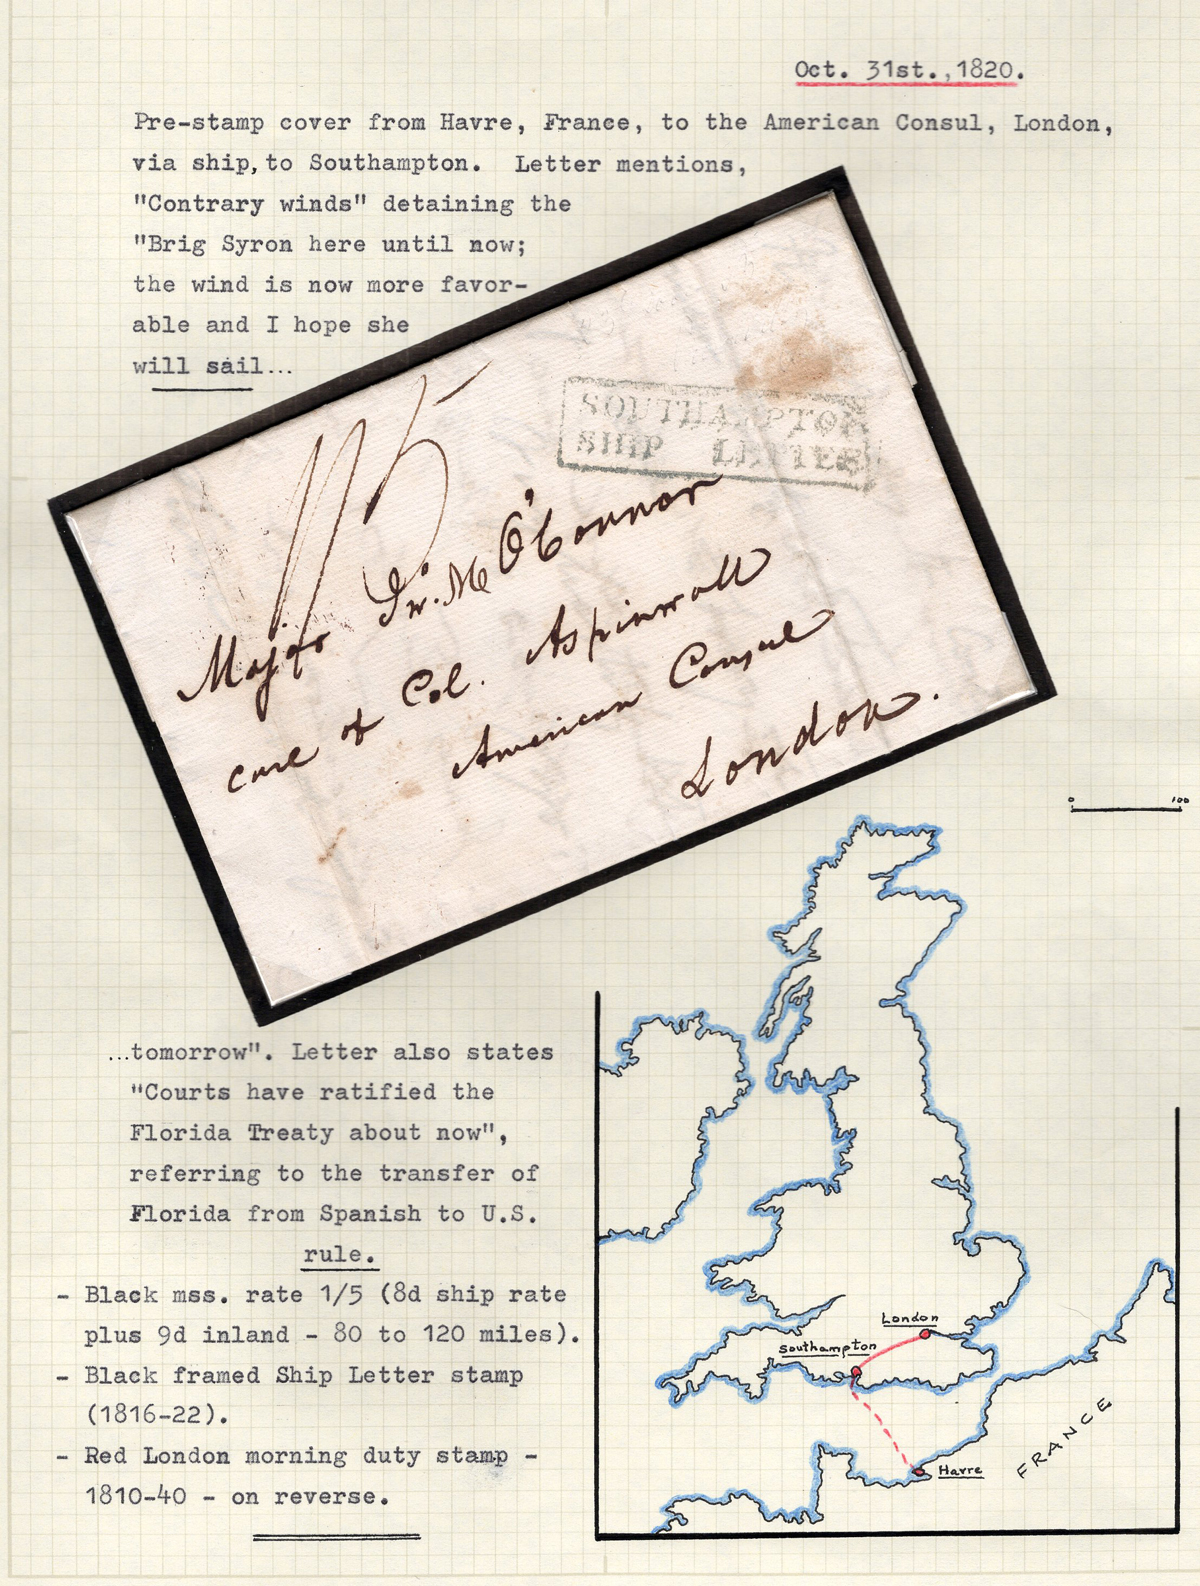 Oct. 31st.,1820.
Pre-stamp cover from Havre, France, to the American Consul, London,
via ship, to Southampton. Letter mentions,
"Contrary winds" detaining the
"Brig Syron here until now;
the wind is now more favor-
able and I hope she
will sail...
1/5
SOUTHAMPTON
SHIP LETTER
Major O'Connor
care of Col. Aspinwall
American Consul
London.
...tomorrow". Letter also states
"Courts have ratified the
Florida Treaty about now",
referring to the transfer of
Florida from Spanish to U.S.
rule.
- Black mss. rate 1/5 (8d ship rate
plus 9d inland - 80 to 120 miles).
- Black framed Ship Letter stamp
(1816-22).
- Red London morning duty stamp -
1810-40 - on reverse.
0 100
London
Southampton
Havre
FRANCE